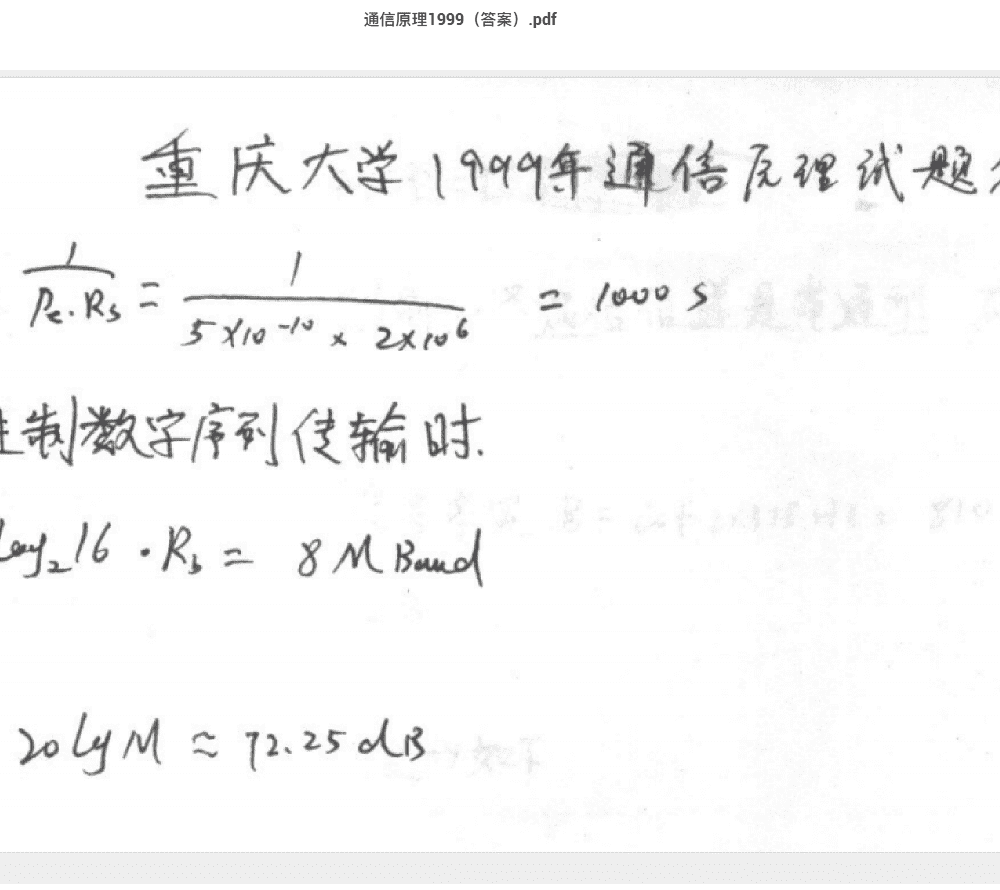 通信原理1999（答案）.pdf
重庆大学1999年通信原理试题
1/(Pe·Rs) = 1/(5×10^-10 × 2×10^6) = 1000 s
进制数字序列传输时.
log₂16 · Rs = 8 M Baud
20 lg M ≈ 72.25 dB